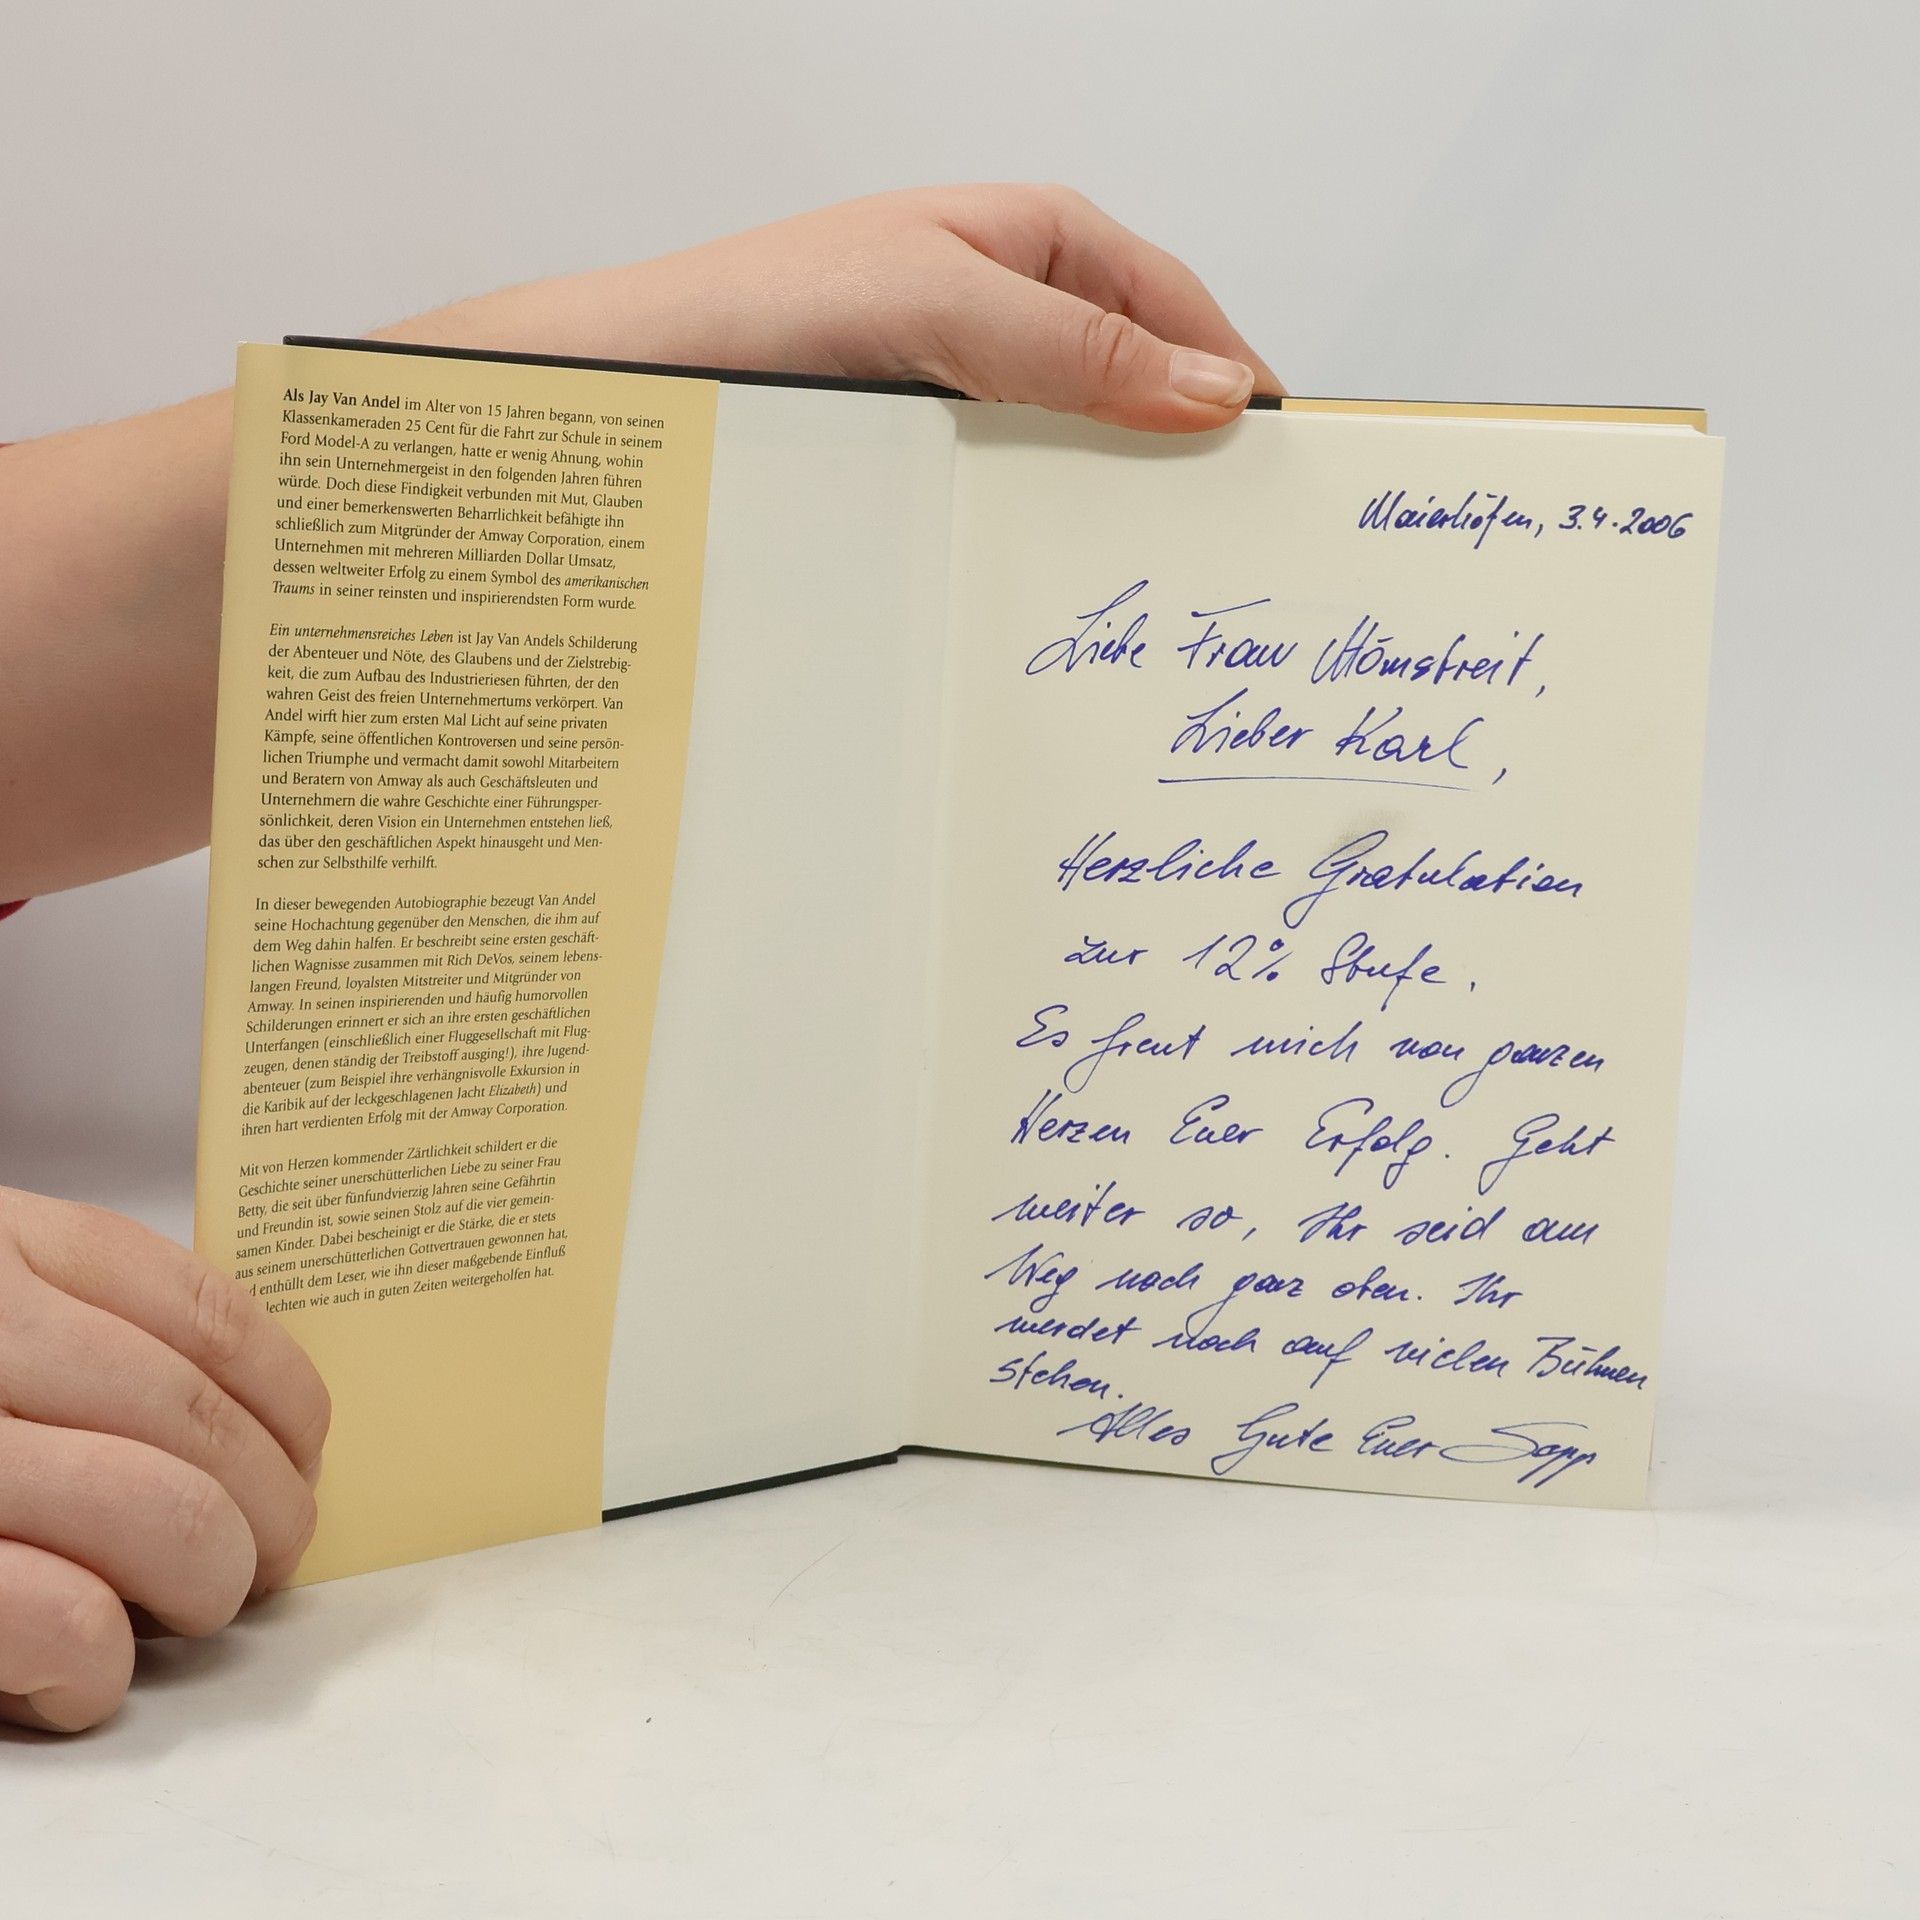 Als Jay Van Andel im Alter von 15 Jahren begann, von seinen
Klassenkameraden 25 Cent für die Fahrt zur Schule in seinem
Ford Model-A zu verlangen, hatte er wenig Ahnung, wohin
ihn sein Unternehmergeist in den folgenden Jahren führen
würde. Doch diese Findigkeit verbunden mit Mut, Glauben
und einer bemerkenswerten Beharrlichkeit befähigte ihn
schließlich zum Mitgründer der Amway Corporation, einem
Unternehmen mit mehreren Milliarden Dollar Umsatz,
dessen weltweiter Erfolg zu einem Symbol des amerikanischen
Traums in seiner reinsten und inspirierendsten Form wurde.
Ein unternehmensreiches Leben ist Jay Van Andels Schilderung
der Abenteuer und Nöte, des Glaubens und der Zielstrebig-
keit, die zum Aufbau des Industrieriesen führten, der den
wahren Geist des freien Unternehmertums verkörpert. Van
Andel wirft hier zum ersten Mal Licht auf seine privaten
Kämpfe, seine öffentlichen Kontroversen und seine persön-
lichen Triumphe und vermacht damit sowohl Mitarbeitern
und Beratern von Amway als auch Geschäftsleuten und
Unternehmern die wahre Geschichte einer Führungsper-
sönlichkeit, deren Vision ein Unternehmen entstehen ließ,
das über den geschäftlichen Aspekt hinausgeht und Men-
schen zur Selbsthilfe verhilft.
In dieser bewegenden Autobiographie bezeugt Van Andel
seine Hochachtung gegenüber den Menschen, die ihm auf
dem Weg dahin halfen. Er beschreibt seine ersten geschäft-
lichen Wagnisse zusammen mit Rich DeVos, seinem lebens-
langen Freund, loyalsten Mitstreiter und Mitgründer von
Amway. In seinen inspirierenden und häufig humorvollen
Schilderungen erinnert er sich an ihre ersten geschäftlichen
Unterfangen (einschließlich einer Fluggesellschaft mit Flug-
zeugen, denen ständig der Treibstoff ausging!), ihre Jugend-
abenteuer (zum Beispiel ihre verhängnisvolle Exkursion in
die Karibik auf der leckgeschlagenen Jacht Elizabeth) und
ihren hart verdienten Erfolg mit der Amway Corporation.
Mit von Herzen kommender Zärtlichkeit schildert er die
Geschichte seiner unerschütterlichen Liebe zu seiner Frau
Betty, die seit über fünfundvierzig Jahren seine Gefährtin
und Freundin ist, sowie seinen Stolz auf die vier gemein-
samen Kinder. Dabei bescheinigt er die Stärke, die er stets
aus seinem unerschütterlichen Gottvertrauen gewonnen hat,
d enthüllt dem Leser, wie ihn dieser maßgebende Einfluß
lechten wie auch in guten Zeiten weitergeholfen hat.
Maierhöfen, 3.4.2006
Liebe Frau
Lieber Karl,
Herzliche Gratulation
zur 12% Stufe.
Es freut mich von ganzen
Herzen Euer Erfolg. Geht
weiter so, Ihr seid am
Weg nach ganz oben. Ihr
werdet noch auf vielen Bühnen
stehen.
Alles Gute Euer Sepp